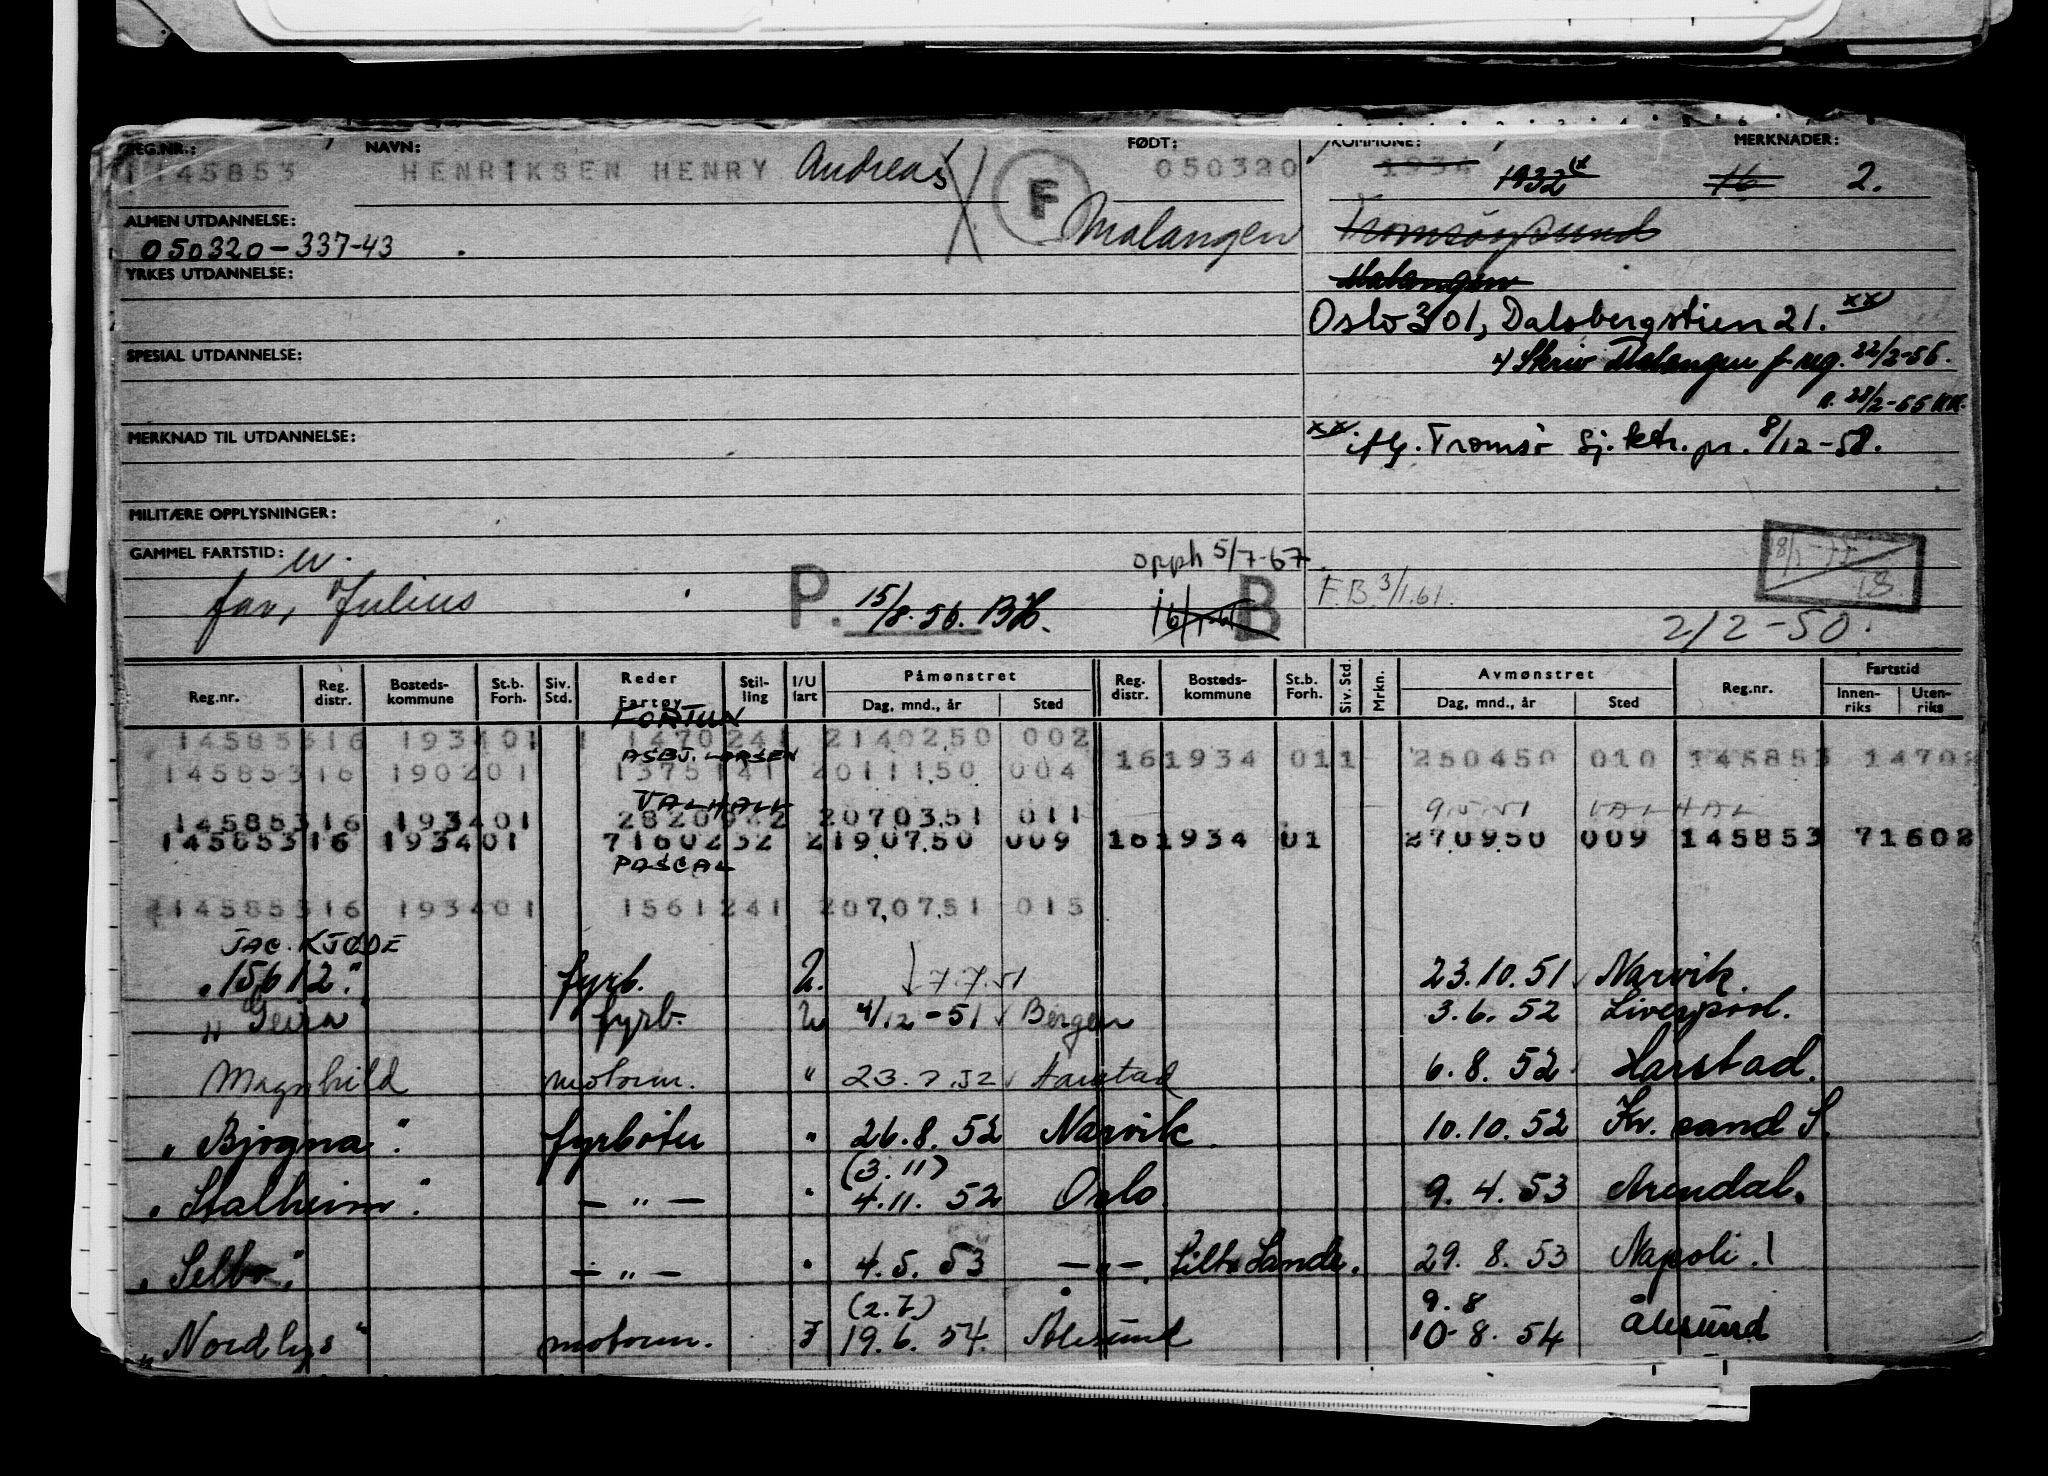 REG.NR.: NAVN: FØDT: KOMMUNE: MERKNADER:
145853 HENRIKSEN HENRY Andreas F 050320 1934 1932 16 2.
ALMEN UTDANNELSE: Malangen Tromsøysund
050320-337-43
YRKES UTDANNELSE: Malangen
Oslo 301, Dalsbergstien 21. xx)
SPESIAL UTDANNELSE: x) Skriv Malangen f. reg. 22/2-56.
28/2-56
MERKNAD TIL UTDANNELSE: xx) ifg. Tromsø Sj.ktr. pr. 8/12-58.
MILITÆRE OPPLYSNINGER:
GAMMEL FARTSTID: opph 5/7-67.
far, Julius P. 15/8.56. BH. B F.B. 3/1.61. 18.
2/2-50.
Reg.nr. Reg. distr. Bosteds- kommune St.b. Forh. Siv. Std. Reder Fartøy Stil- ling I/U fart Påmønstret Dag, mnd., år Sted Reg. distr. Bosteds- kommune St.b. Forh. Siv. Std. Mrkn. Avmønstret Dag, mnd., år Sted Reg.nr. Fartstid Innen- riks Uten- riks
FORTUN
14585316 193401 1 1470241 2140250 002 161934 011 250450 010 145853 14702
ASBJ. LARSEN
14585316 190201 1375141 2011150 004
VALHALL
14585316 193401 2820342 2070351 011 9.5.51 VALHAL
14585316 193401 7160232 2190750 009 161934 01 270950 009 145853 71602
PASCAL
214585316 193401 1561241 2070751 015
JAC. KJØDE
"15612" fyrb. U. 7.7.51 23.10.51 Narvik.
" Geira fyrb. U 4/12-51 Bergen 3.6.52 Liverpool.
Magnhild motorm. " 23.7.52 Harstad 6.8.52 Harstad.
"Bjogna" fyrbøter " 26.8.52 Narvik 10.10.52 Kr.sand S.
(3.11)
"Stalheim" — " — " 4.11.52 Oslo. 9.4.53 Arendal.
"Selbo" — " — " 4.5.53 — " — Lilts Lande. 29.8.53 Napoli.
(2.7) 9.8
"Nordlys" motorm. I 19.6.54. Ålesund 10.8.54 Ålesund